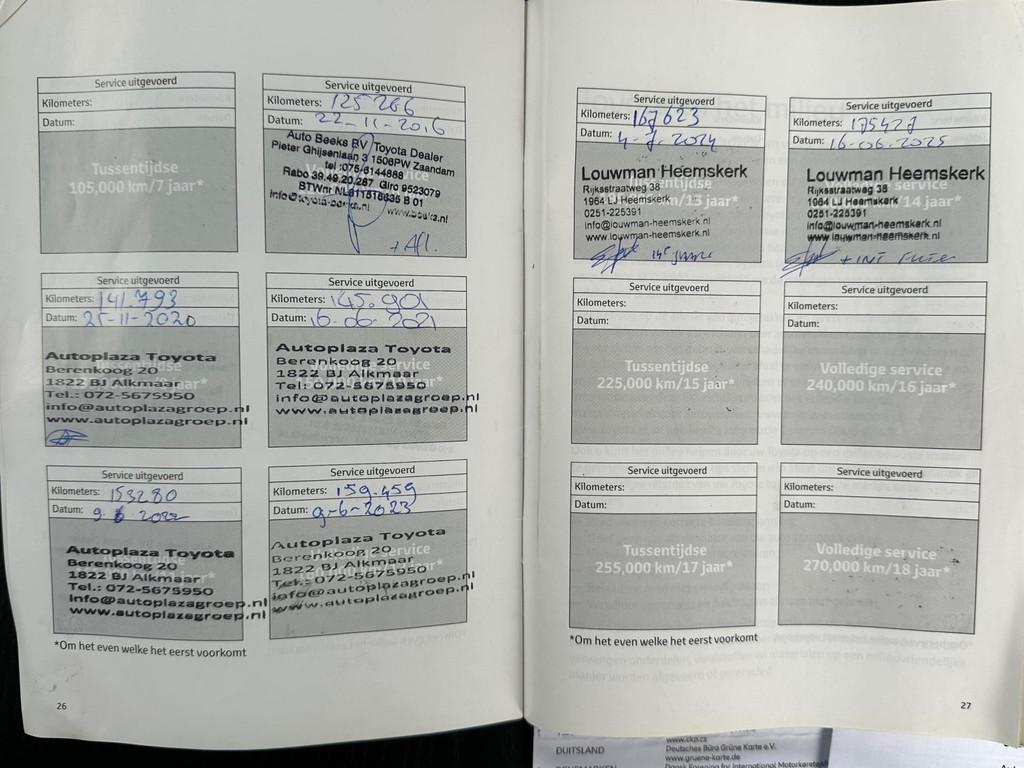 Service uitgevoerd
Kilometers:
Datum:
Tussentijdse
105,000 km/7 jaar*
Service uitgevoerd
Kilometers: 125 266
Datum: 22-11-2016
Auto Beeks BV / Toyota Dealer
Pieter Ghijsenlaan 3 1506PW Zaandam
tel :075/6144888
Rabo 39.49.20.287 Giro 9523079
BTWnr NL811516635 B 01
www.beeks.nl
+ Afl.
Service uitgevoerd
Kilometers: 141.793
Datum: 25-11-2020
Autoplaza Toyota
Berenkoog 20
1822 BJ Alkmaar
Tel.: 072-5675950
info@autoplazagroep.nl
www.autoplazagroep.nl
Service uitgevoerd
Kilometers: 145.901
Datum: 16-06-2021
Autoplaza Toyota
Berenkoog 20
1822 BJ Alkmaar
Tel.: 072-5675950
info@autoplazagroep.nl
www.autoplazagroep.nl
Service uitgevoerd
Kilometers: 153280
Datum: 9-6-2022
Autoplaza Toyota
Berenkoog 20
1822 BJ Alkmaar
Tel.: 072-5675950
info@autoplazagroep.nl
www.autoplazagroep.nl
Service uitgevoerd
Kilometers: 159.459
Datum: 9-6-2023
Autoplaza Toyota
Berenkoog 20
1822 BJ Alkmaar
Tel.: 072-5675950
info@autoplazagroep.nl
www.autoplazagroep.nl
*Om het even welke het eerst voorkomt
26
Service uitgevoerd
Kilometers: 167623
Datum: 4-7-2024
Louwman Heemskerk
Rijksstraatweg 38
1964 LJ Heemskerk
0251-225391
info@louwman-heemskerk.nl
www.louwman-heemskerk.nl
km/13 jaar*
Service uitgevoerd
Kilometers: 175427
Datum: 16-06-2025
Louwman Heemskerk
Rijksstraatweg 38
1964 LJ Heemskerk
0251-225391
info@louwman-heemskerk.nl
www.louwman-heemskerk.nl
service
km/14 jaar*
+ INT FILTER
Service uitgevoerd
Kilometers:
Datum:
Tussentijdse
225,000 km/15 jaar*
Service uitgevoerd
Kilometers:
Datum:
Volledige service
240,000 km/16 jaar*
Service uitgevoerd
Kilometers:
Datum:
Tussentijdse
255,000 km/17 jaar*
Service uitgevoerd
Kilometers:
Datum:
Volledige service
270,000 km/18 jaar*
*Om het even welke het eerst voorkomt
27
www.ckp.cz
DUITSLAND
Deutsches Büro Grüne Karte e.V.
www.gruene-karte.de